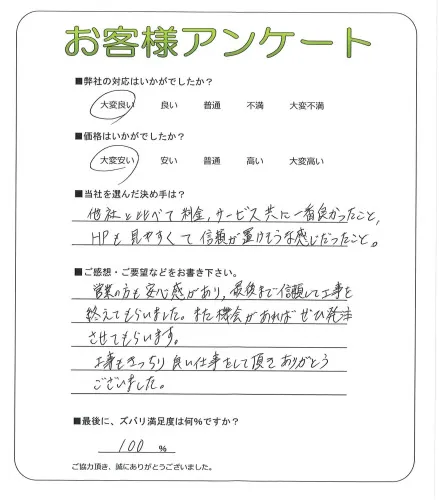 お客様アンケート
■弊社の対応はいかがでしたか？
大変良い 良い 普通 不満 大変不満
■価格はいかがでしたか？
大変安い 安い 普通 高い 大変高い
■当社を選んだ決め手は？
他社と比べて料金,サービス共に一番良かったこと,
HPも見やすくて信頼が置けそうな感じだったこと。
■ご感想・ご要望などをお書き下さい。
営業の方も安心感があり,最後まで信頼して工事を
終えてもらいました。また機会があればぜひ発注
させてもらいます。
工事もきっちり良い仕事をして頂きありがとう
ございました。
■最後に、ズバリ満足度は何％ですか？
100 ％
ご協力頂き、誠にありがとうございました。